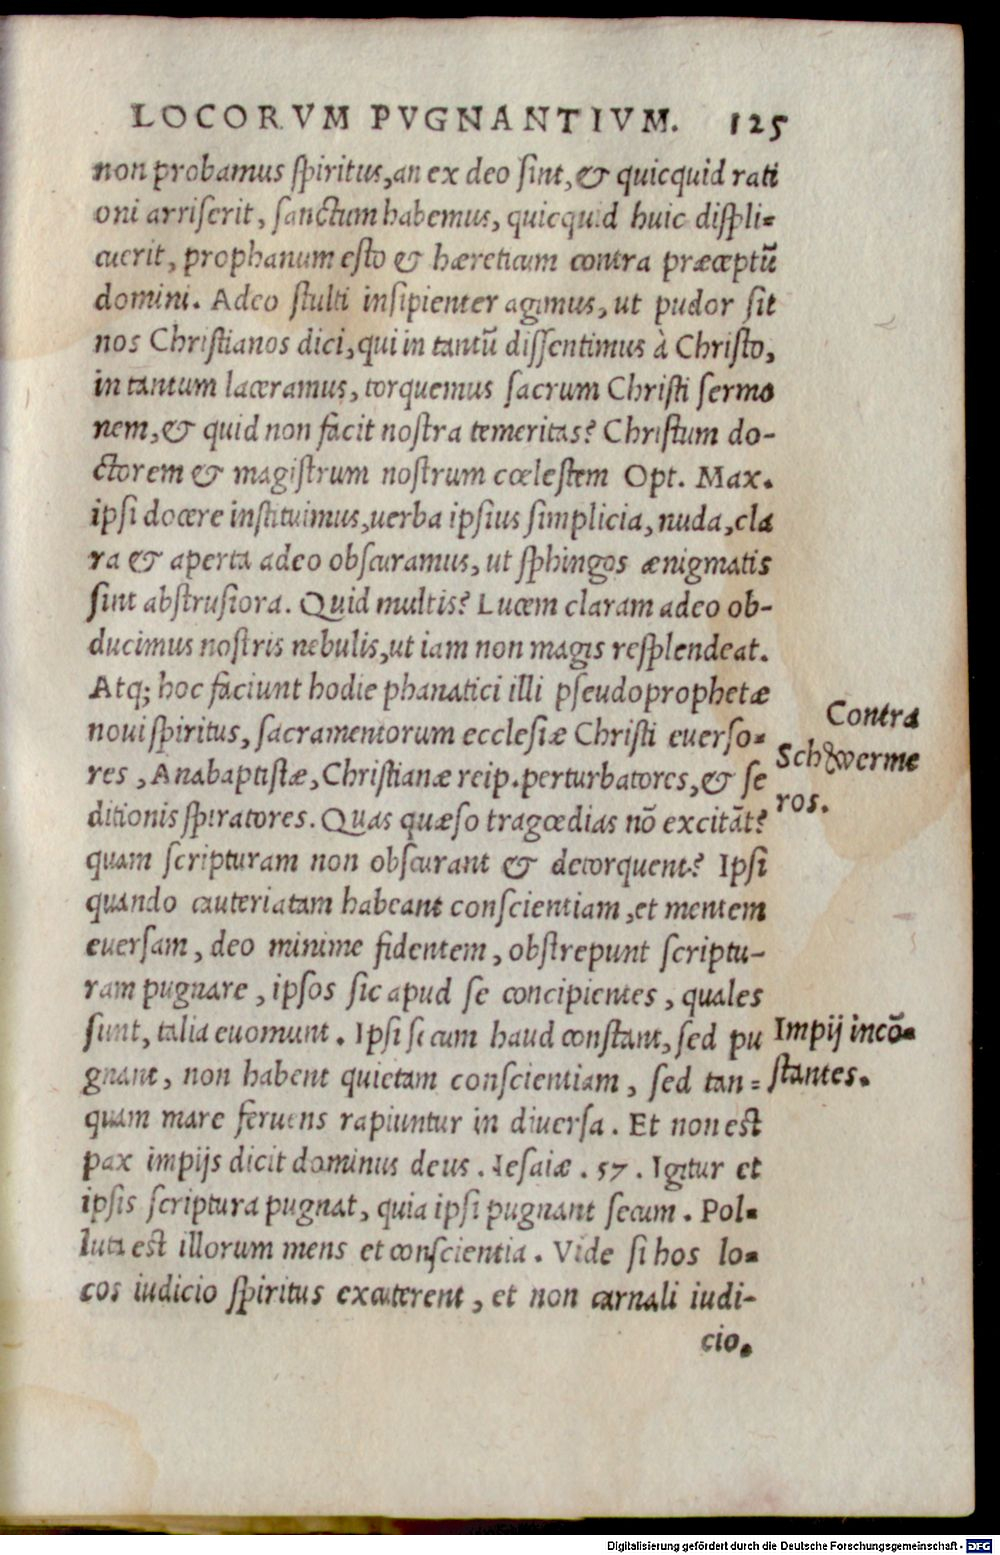 LOCORVM PVGNANTIVM. 125
non probamus spiritus, an ex deo sint, & quicquid rati
oni arriserit, sanctum habemus, quicquid huic displi=
cuerit, prophanum esto & hæreticum contra præceptū
domini. Adeo stulti insipienter agimus, ut pudor sit
nos Christianos dici, qui in tantū dissentimus à Christo,
in tantum laceramus, torquemus sacrum Christi sermo
nem, & quid non facit nostra temeritas? Christum do-
ctorem & magistrum nostrum cœlestem Opt. Max.
ipsi docere instituimus, uerba ipsius simplicia, nuda, cla
ra & aperta adeo obscuramus, ut sphingos ænigmatis
sint abstrusiora. Quid multis? Lucem claram adeo ob-
ducimus nostris nebulis, ut iam non magis resplendeat.
Atq; hoc faciunt hodie phanatici illi pseudoprophetæ
noui spiritus, sacramentorum ecclesiæ Christi euerso=
res, Anabaptistæ, Christianæ reip. perturbatores, & se
ditionis spiratores. Quas quæso tragœdias nō excitāt?
quam scripturam non obscurant & detorquent? Ipsi
quando cauteriatam habeant conscientiam, et mentem
euersam, deo minime fidentem, obstrepunt scriptu-
ram pugnare, ipsos sic apud se concipientes, quales
sunt, talia euomunt. Ipsi secum haud constant, sed pu
gnant, non habent quietam conscientiam, sed tan=
quam mare feruens rapiuntur in diuersa. Et non est
pax impijs dicit dominus deus. Iesaiæ. 57. Igitur et
ipsis scriptura pugnat, quia ipsi pugnant secum. Pol=
luta est illorum mens et conscientia. Vide si hos lo=
cos iudicio spiritus excuterent, et non carnali iudi-
cio.
Contra
Schwerme
ros.
Impij incō=
stantes.
Digitalisierung gefördert durch die Deutsche Forschungsgemeinschaft - DFG